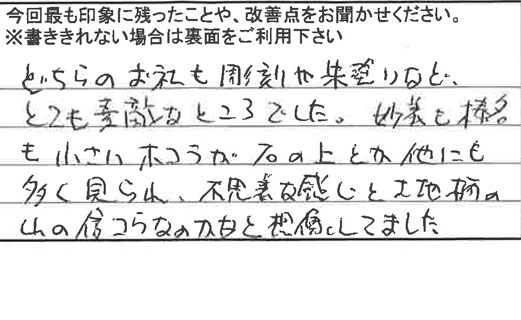 今回最も印象に残ったことや、改善点をお聞かせください。
※書ききれない場合は裏面をご利用下さい
どちらのお礼も彫刻や朱塗りなど、
とても素敵なところでした。妙義も榛名
も小さいホコラが石の上とか他にも
多く見られ、不思議な感じと土地柄の
山の信コウなのかなと想像してました